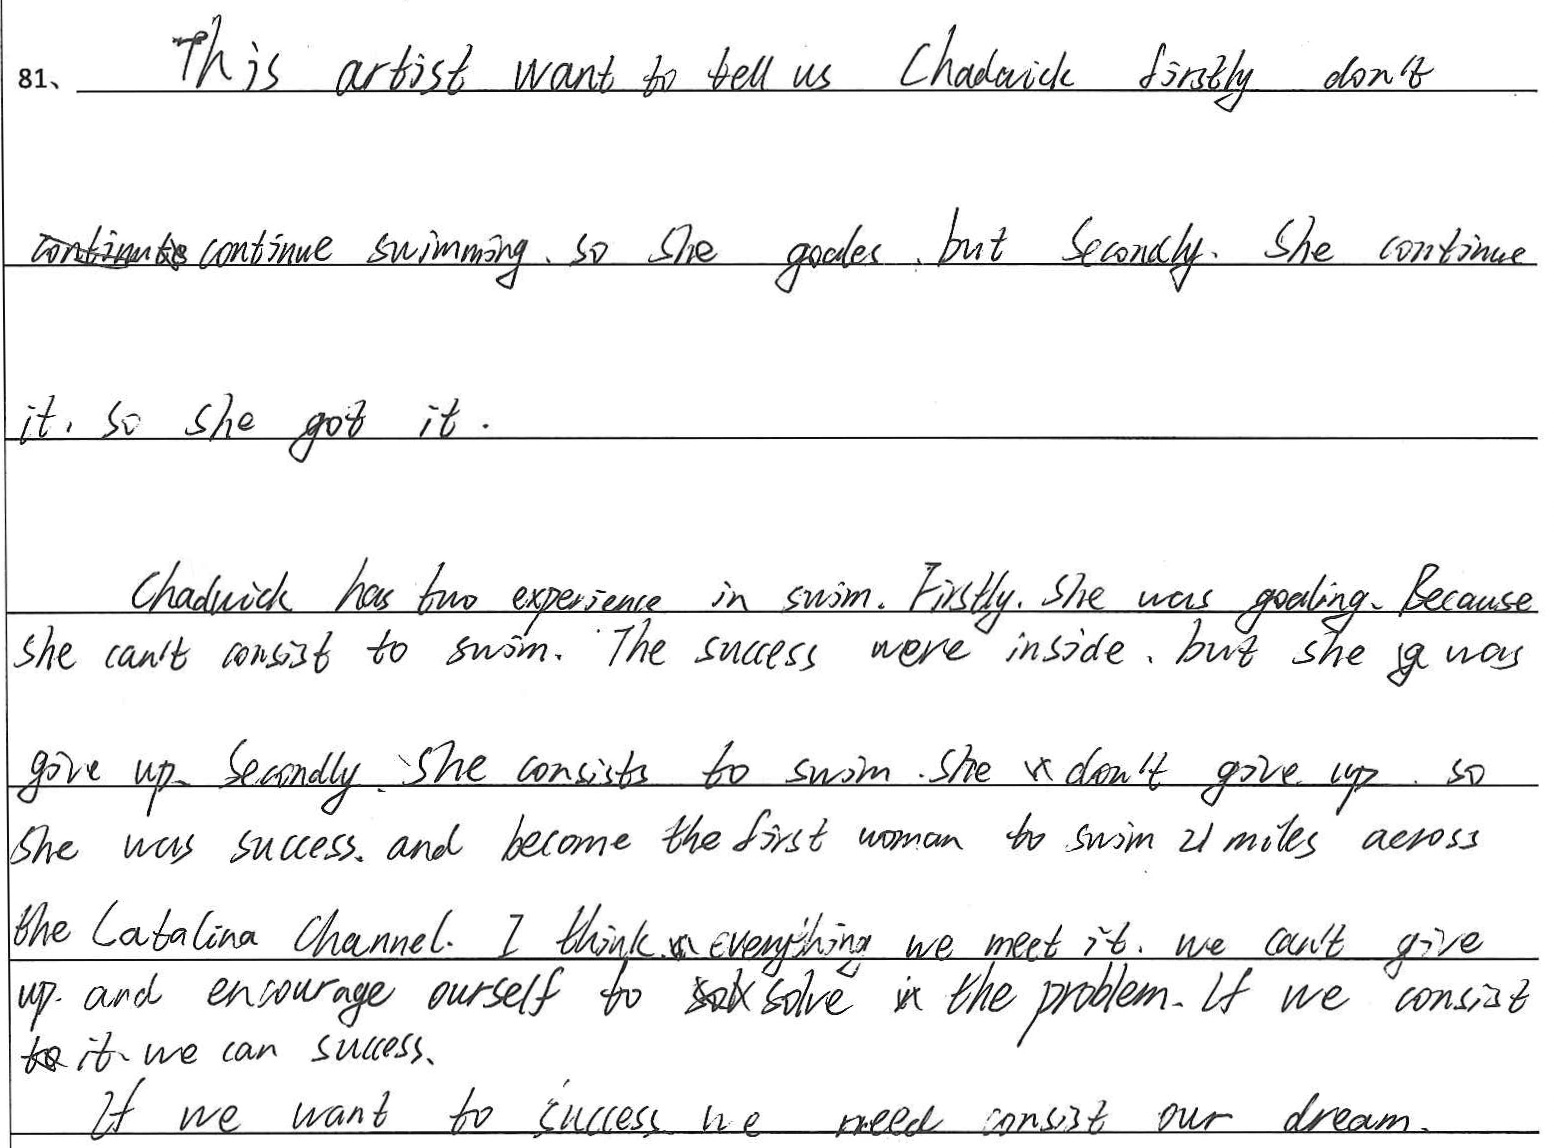 81、 This artist want to tell us Chadwick firstly don't
continue swimming. so she goales. but Secondly. She continue
it. so she got it.
Chadwick has two experience in swim. Firstly. She was goaling. Because
she can't consist to swim. The success were inside. but she was
give up. Secondly. She consists to swim. She don't give up. so
she was success. and become the first woman to swim 21 miles aeross
the Catalina Channel. I think everything we meet it. we can't give
up. and encourage ourself to solve the problem. If we consist
it. we can success.
If we want to success we need consist our dream.